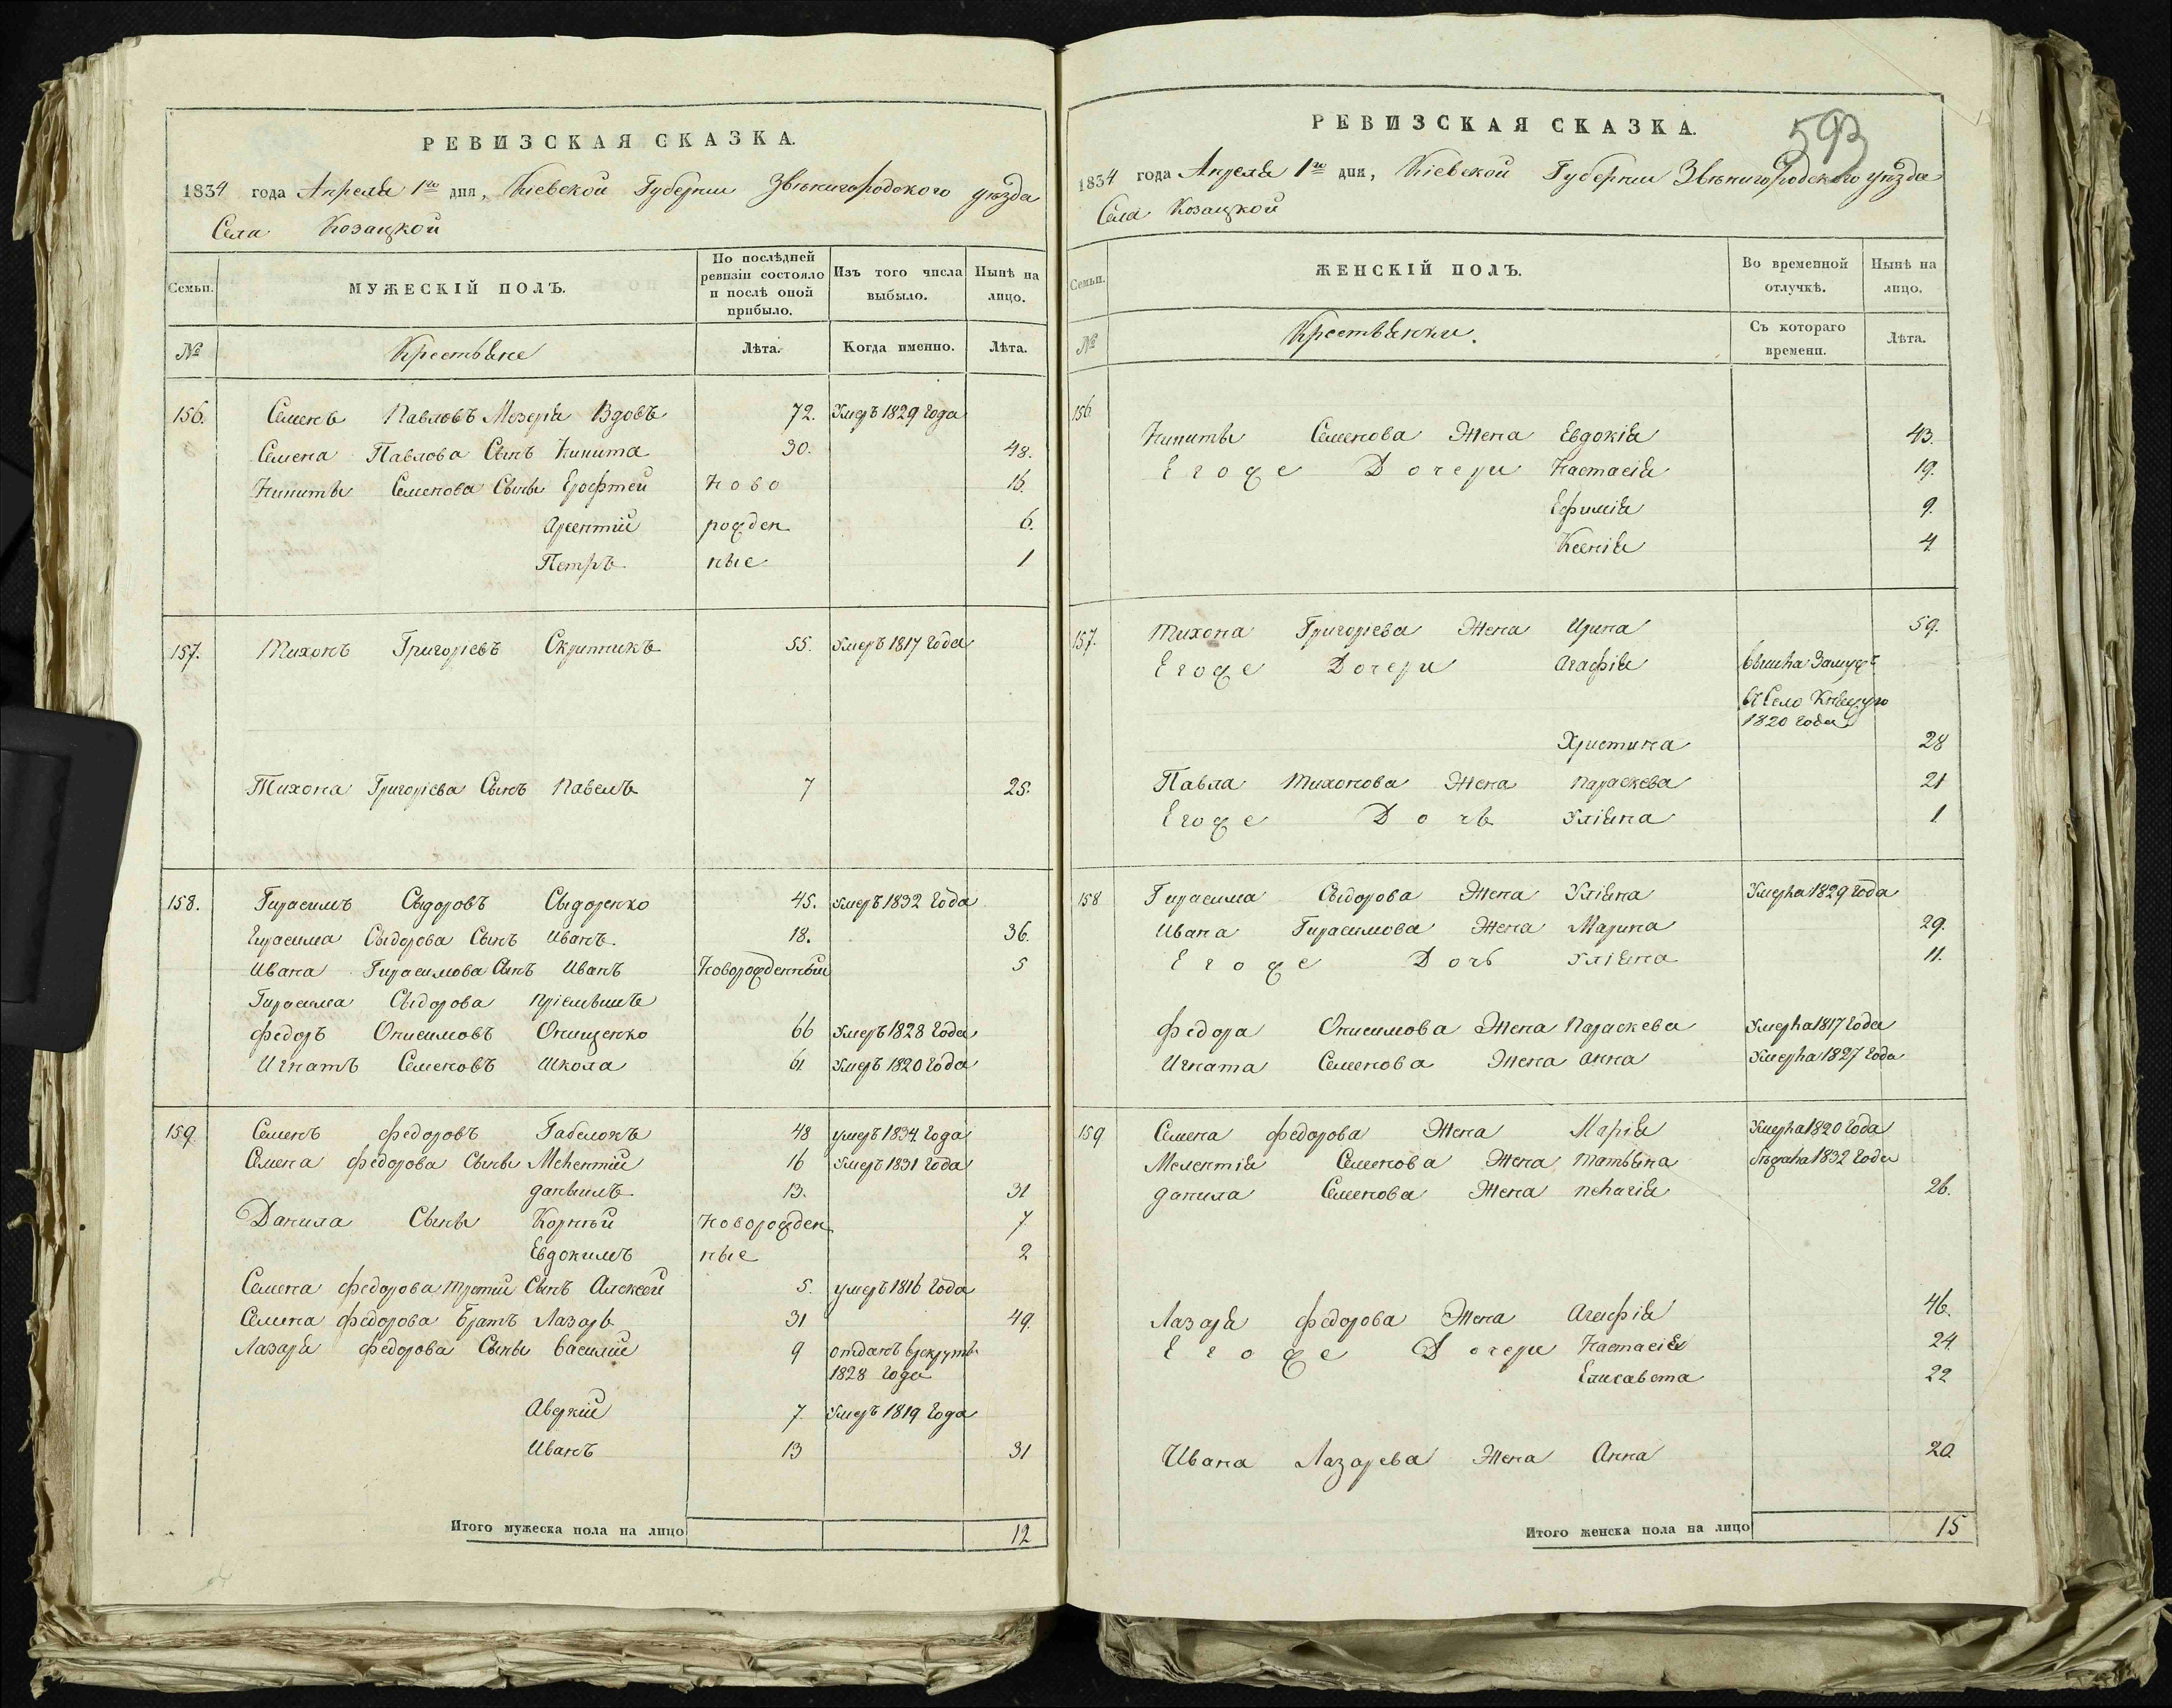 РЕВИЗСКАЯ СКАЗКА.
1834 года Апреля 1го дня, Кіевской Губерніи Звѣнигородского уѣзда
Села Козацкой
Семьи.
МУЖЕСКІЙ ПОЛЪ.
По послѣдней ревизіи состояло и послѣ оной прибыло.
Изъ того числа выбыло.
Нынѣ на лицо.
№ Крестьяне Лѣта. Когда именно. Лѣта.
156. Семенъ Павловъ Мозеря Вдовъ 72. Умеръ 1829 года
Семена Павлова Сынъ Никита 30. 48.
Никиты Семенова Сыны Ерофтей Ново 15.
Арсентій рожден 6.
Петръ ные 1
157. Тихонъ Григоріевъ Скрипникъ 55. Умеръ 1817 года
Тихона Григоріева Сынъ Павелъ 7 25.
158. Гирасимъ Сыдоровъ Сыдоренко 45. Умеръ 1832 года
Гирасима Сыдорова Сынъ Иванъ. 18. 36.
Ивана Гирасимова Сынъ Иванъ Новорожденный 5
Гирасима Сыдорова пріемыши
Федоръ Онисимовъ Онищенко 66 Умеръ 1828 года
Игнатъ Семеновъ Школа 61 Умеръ 1820 года
159. Семенъ Федоровъ Габелокъ 48 умеръ 1834 года
Семена Федорова Сыны Мелентій 16 Умеръ 1831 года
Данъилъ 13. 31
Данила Сыны Корнѣй Новорожден 7
Евдокимъ ные 2
Семена Федорова третій Сынъ Алексей 5. умеръ 1816 года
Семена Федорова Братъ Лазарь 31 49.
Лазаря Федорова Сыны Василій 9 отданъ врекруты
1828 года
Аверкій 7. Умеръ 1819 года
Иванъ 13 31
Итого мужеска пола на лицо 12
593
РЕВИЗСКАЯ СКАЗКА.
1834 года Апреля 1го дня, Кіевской Губерніи Звѣнигородского уѣзда
Села Козацкой
Семьи.
ЖЕНСКІЙ ПОЛЪ.
Во временной отлучкѣ.
Нынѣ на лицо.
№ Крестьянки. Съ котораго времени. Лѣта.
156
Никиты Семенова Жена Евдокія 43.
Егоже Дочери Настасія 19.
Ефимія 9.
Ксенія 4
157. Тихона Григоріева Жена Ирина 59.
Егоже Дочери Агафія вышла Замужъ
въ Село
1820 года
Христина 28
Павла Тихонова Жена Параскева 21
Егоже Дочь Уліяна 1
158 Гирасима Сыдорова Жена Уліяна Умерла 1829 года
Ивана Гирасимова Жена Марина 29.
Егоже Дочь Уліяна 11.
Федора Онисимова Жена Параскева Умерла 1817 года
Игната Семенова Жена Анна Умерла 1827 года
159 Семена Федорова Жена Марія Умерла 1820 года
Мелентія Семенова Жена Татьяна бѣжала 1832 года
Данила Семенова Жена Пелагія 26.
Лазаря Федорова Жена Агафія 46.
Егоже Дочери Настасія 24
Елисавета 22
Ивана Лазарева Жена Анна 20
Итого женска пола на лицо 15